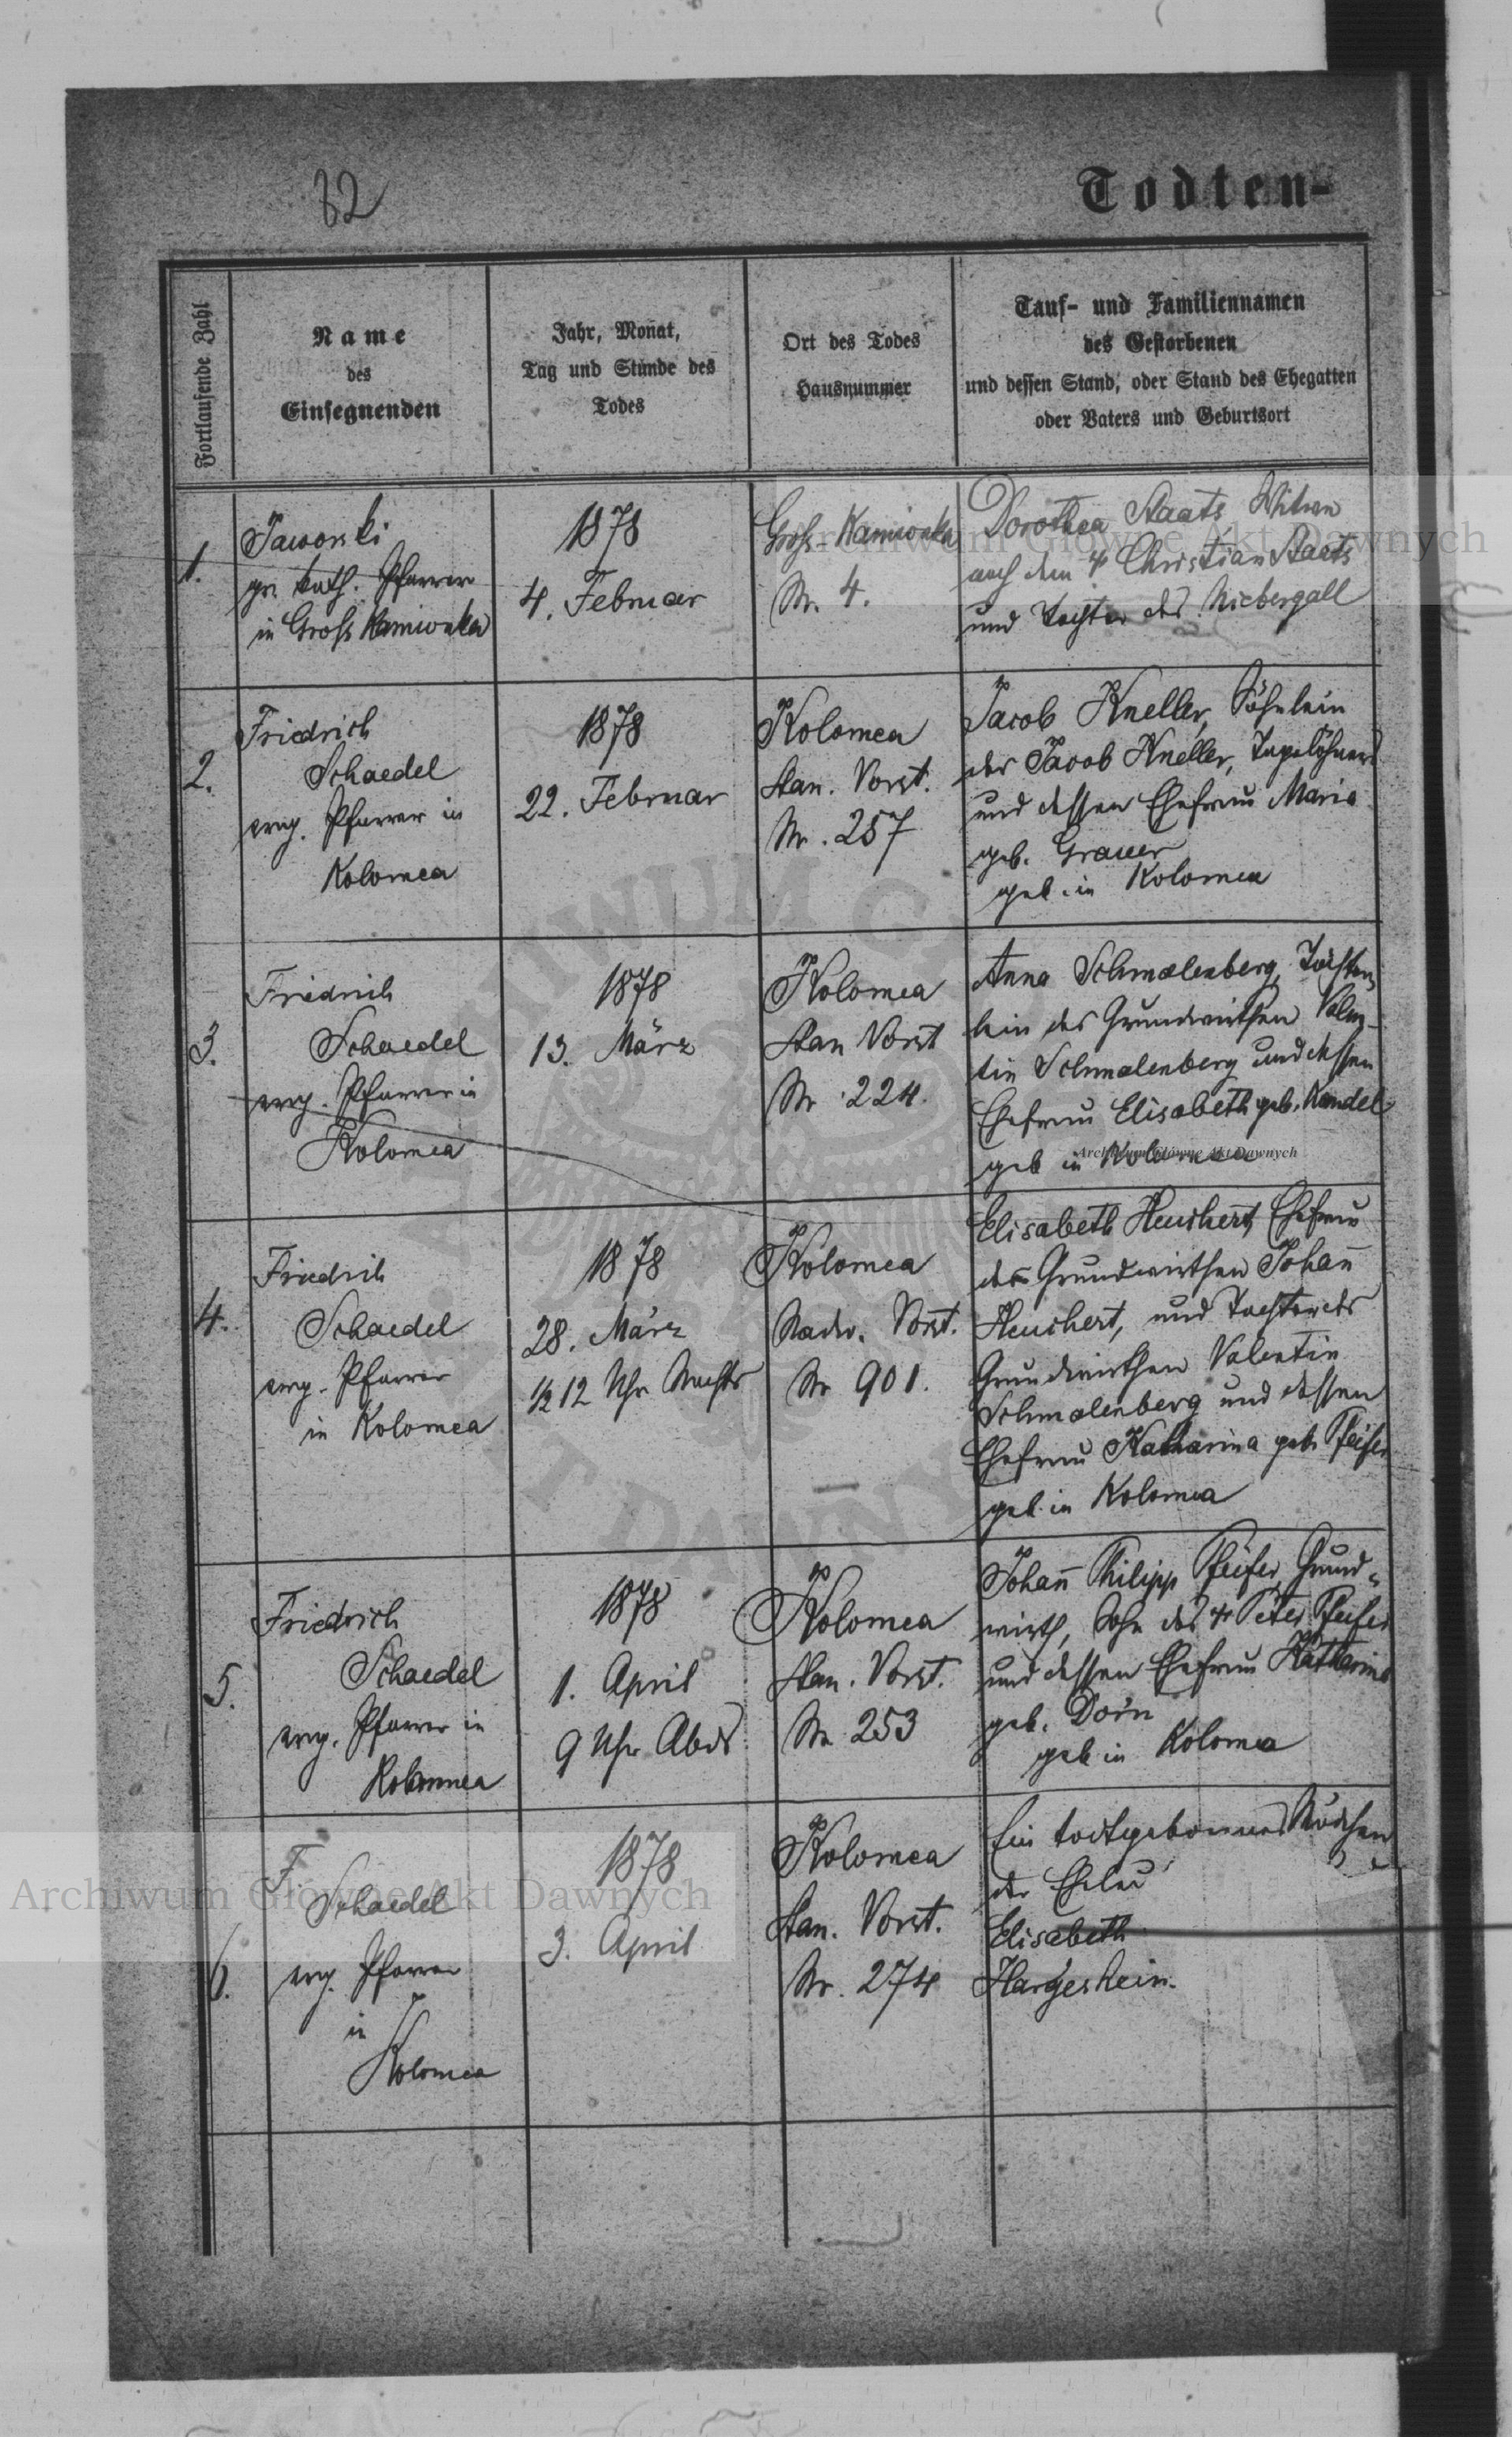 82
Todten-
Fortlaufende Zahl
Name
des
Einsegnenden
Jahr, Monat,
Tag und Stunde des
Todes
Ort des Todes
Hausnummer
Tauf- und Familiennamen
des Gestorbenen
und dessen Stand, oder Stand des Ehegatten
oder Vaters und Geburtsort
1.
Jaworski
gr. kath. Pfarrer
in Gross Kamionka
1878
4. Februar
Gross-Kamionka
Nr. 4.
Dorothea Staats Witwe
nach dem † Christian Staats
und Tochter des Niebergall
2.
Friedrich
Schaedel
evng. Pfarrer in
Kolomea
1878
22. Februar
Kolomea
Stan. Vorst.
Nr. 257
Jacob Kneller, Söhnlein
des Jacob Kneller, Tagelöhners
und dessen Ehefrau Maria
geb. Grauer
geb. in Kolomea
3.
Friedrich
Schaedel
evng. Pfarrer in
Kolomea
1878
13. März
Kolomea
Stan Vorst
Nr 224.
Anna Schmalenberg, Töchter-
lein des Grundwirthen Valen-
tin Schmalenberg und dessen
Ehefrau Elisabeth geb. Kandel
geb in Kolomea
4.
Friedrich
Schaedel
evng. Pfarrer
in Kolomea
1878
28. März
½ 12 Uhr Nachts
Kolomea
Nadw. Vorst.
Nr 901.
Elisabeth Heuchert, Ehefrau
des Grundwirthen Johann̄
Heuchert, und Tochter des
Grundwirthen Valentin
Schmalenberg und dessen
Ehefrau Katharina geb. Pfeifer
geb. in Kolomea
5.
Friedrich
Schaedel
evng. Pfarrer in
Kolomea
1878
1. April
9 Uhr Abds
Kolomea
Stan. Vorst.
Nr 253
Johan̄ Philipp Pfeifer, Grund-
wirth, Sohn des † Peter Pfeifer
und dessen Ehefrau Katharina
geb. Dorn
geb in Kolomea
6.
F.
Schaedel
evng. Pfarrer
in
Kolomea
1878
3. April
Kolomea
Stan. Vorst.
Nr. 274
Ein todtgebornes Mädchen
der
Elisabeth
Hargeshein.
Archiwum Główne Akt Dawnych
Archiwum Główne Akt Dawnych
Archiwum Główne Akt Dawnych